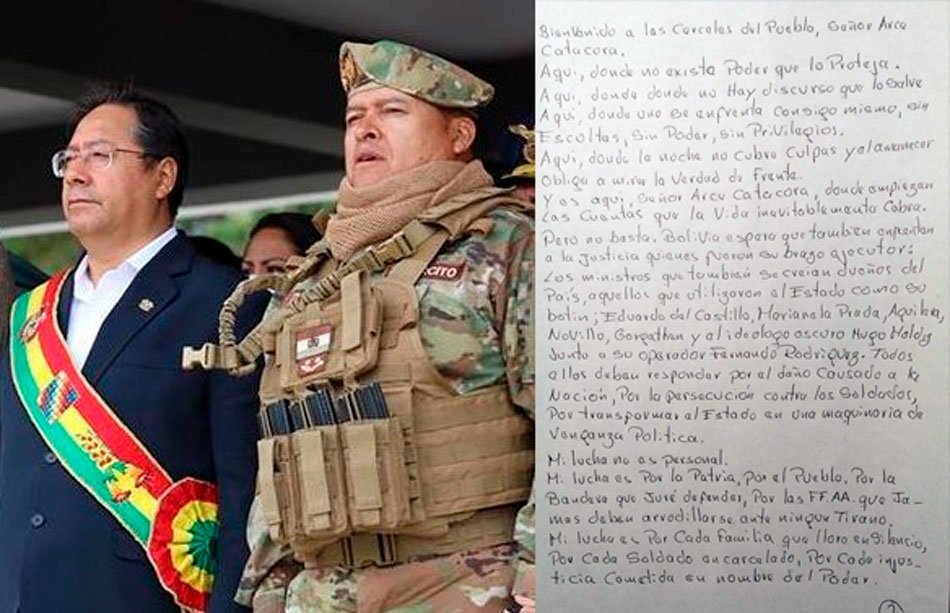 RCITO
Bienvenido a las Carceles del Pueblo, Señor Arce
Catacora.
Aqui, donde no existe Poder que lo Proteja.
Aqui, donde donde no Hay discurso que lo Salve
Aqui, donde uno se enfrenta Consigo mismo, sin
Escoltas, Sin Poder, sin Privilegios.
Aqui, donde la noche no cubre Culpas y el amanecer
Obliga a mirar la Verdad de Frente.
Y es aqui, Señor Arce Catacora, donde empiezan
Las Cuentas que la Vida inevitablemente Cobra.
Pero no basta. Bolivia espera que tambien enfrenten
a la Justicia quienes fueron su brazo ejecutor:
Los ministros que tambien se creian dueños del
País, aquellos que utilizaron el Estado como su
botin; Eduardo del Castillo, Mariana la Prada, Aquilera,
Novillo, Gonzathan y el ideologo oscuro Hugo Moldiz
Junto a su operador Fernando Rodriguez. Todos
ellos deben responder por el daño Causado a la
Nación, Por la persecución contra los Soldados,
Por transformar el Estado en una maquinaria de
Venganza Politica.
Mi lucha no es personal.
Mi lucha es Por la Patria, por el Pueblo, Por la
Bandera que Juré defender, Por las FF.AA. que Ja-
mas deben arrodillarse ante ningun Tirano.
Mi lucha es Por Cada Familia que lloro en Silencio,
Por Cada Soldado encarcelado, Por Cada injus-
ticia Cometida en nombre del Poder.